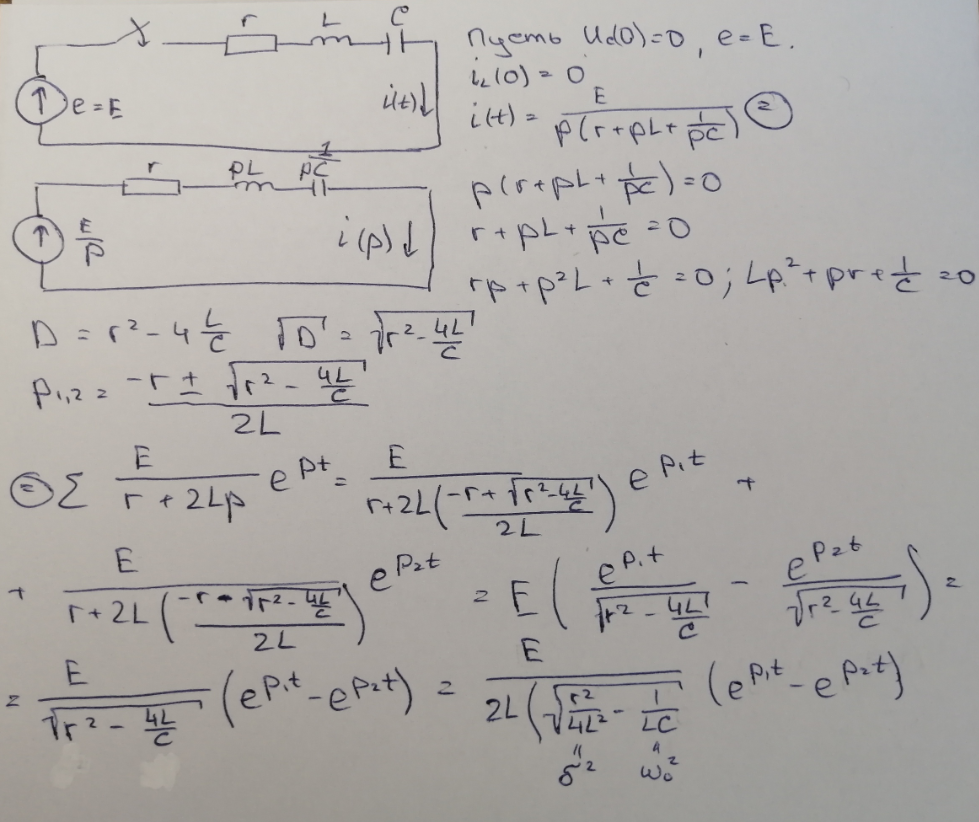 r L C
e = E
i(t)↓
r pL 1/pC
E/p
i(p)↓
Пусть Uc(0)=0, e=E.
iL(0) = 0
i(t) = E/(p(r+pL+1/pC)) ⊜
p(r+pL+1/pC)=0
r+pL+1/pC=0
rp+p²L+1/C=0; Lp²+pr+1/C=0
D = r²-4 L/C √D = √(r²-4L/C)
p₁,₂ = (-r ± √(r²-4L/C))/2L
⊜ Σ E/(r+2Lp) e^(pt) = E/(r+2L((-r+√(r²-4L/C))/2L)) e^(p₁t) +
+ E/(r+2L((-r-√(r²-4L/C))/2L)) e^(p₂t) = E(e^(p₁t)/√(r²-4L/C) - e^(p₂t)/√(r²-4L/C)) =
= E/√(r²-4L/C) (e^(p₁t)-e^(p₂t)) = E/(2L(√(r²/4L²-1/LC) (e^(p₁t)-e^(p₂t))
" "
δ² ω₀²